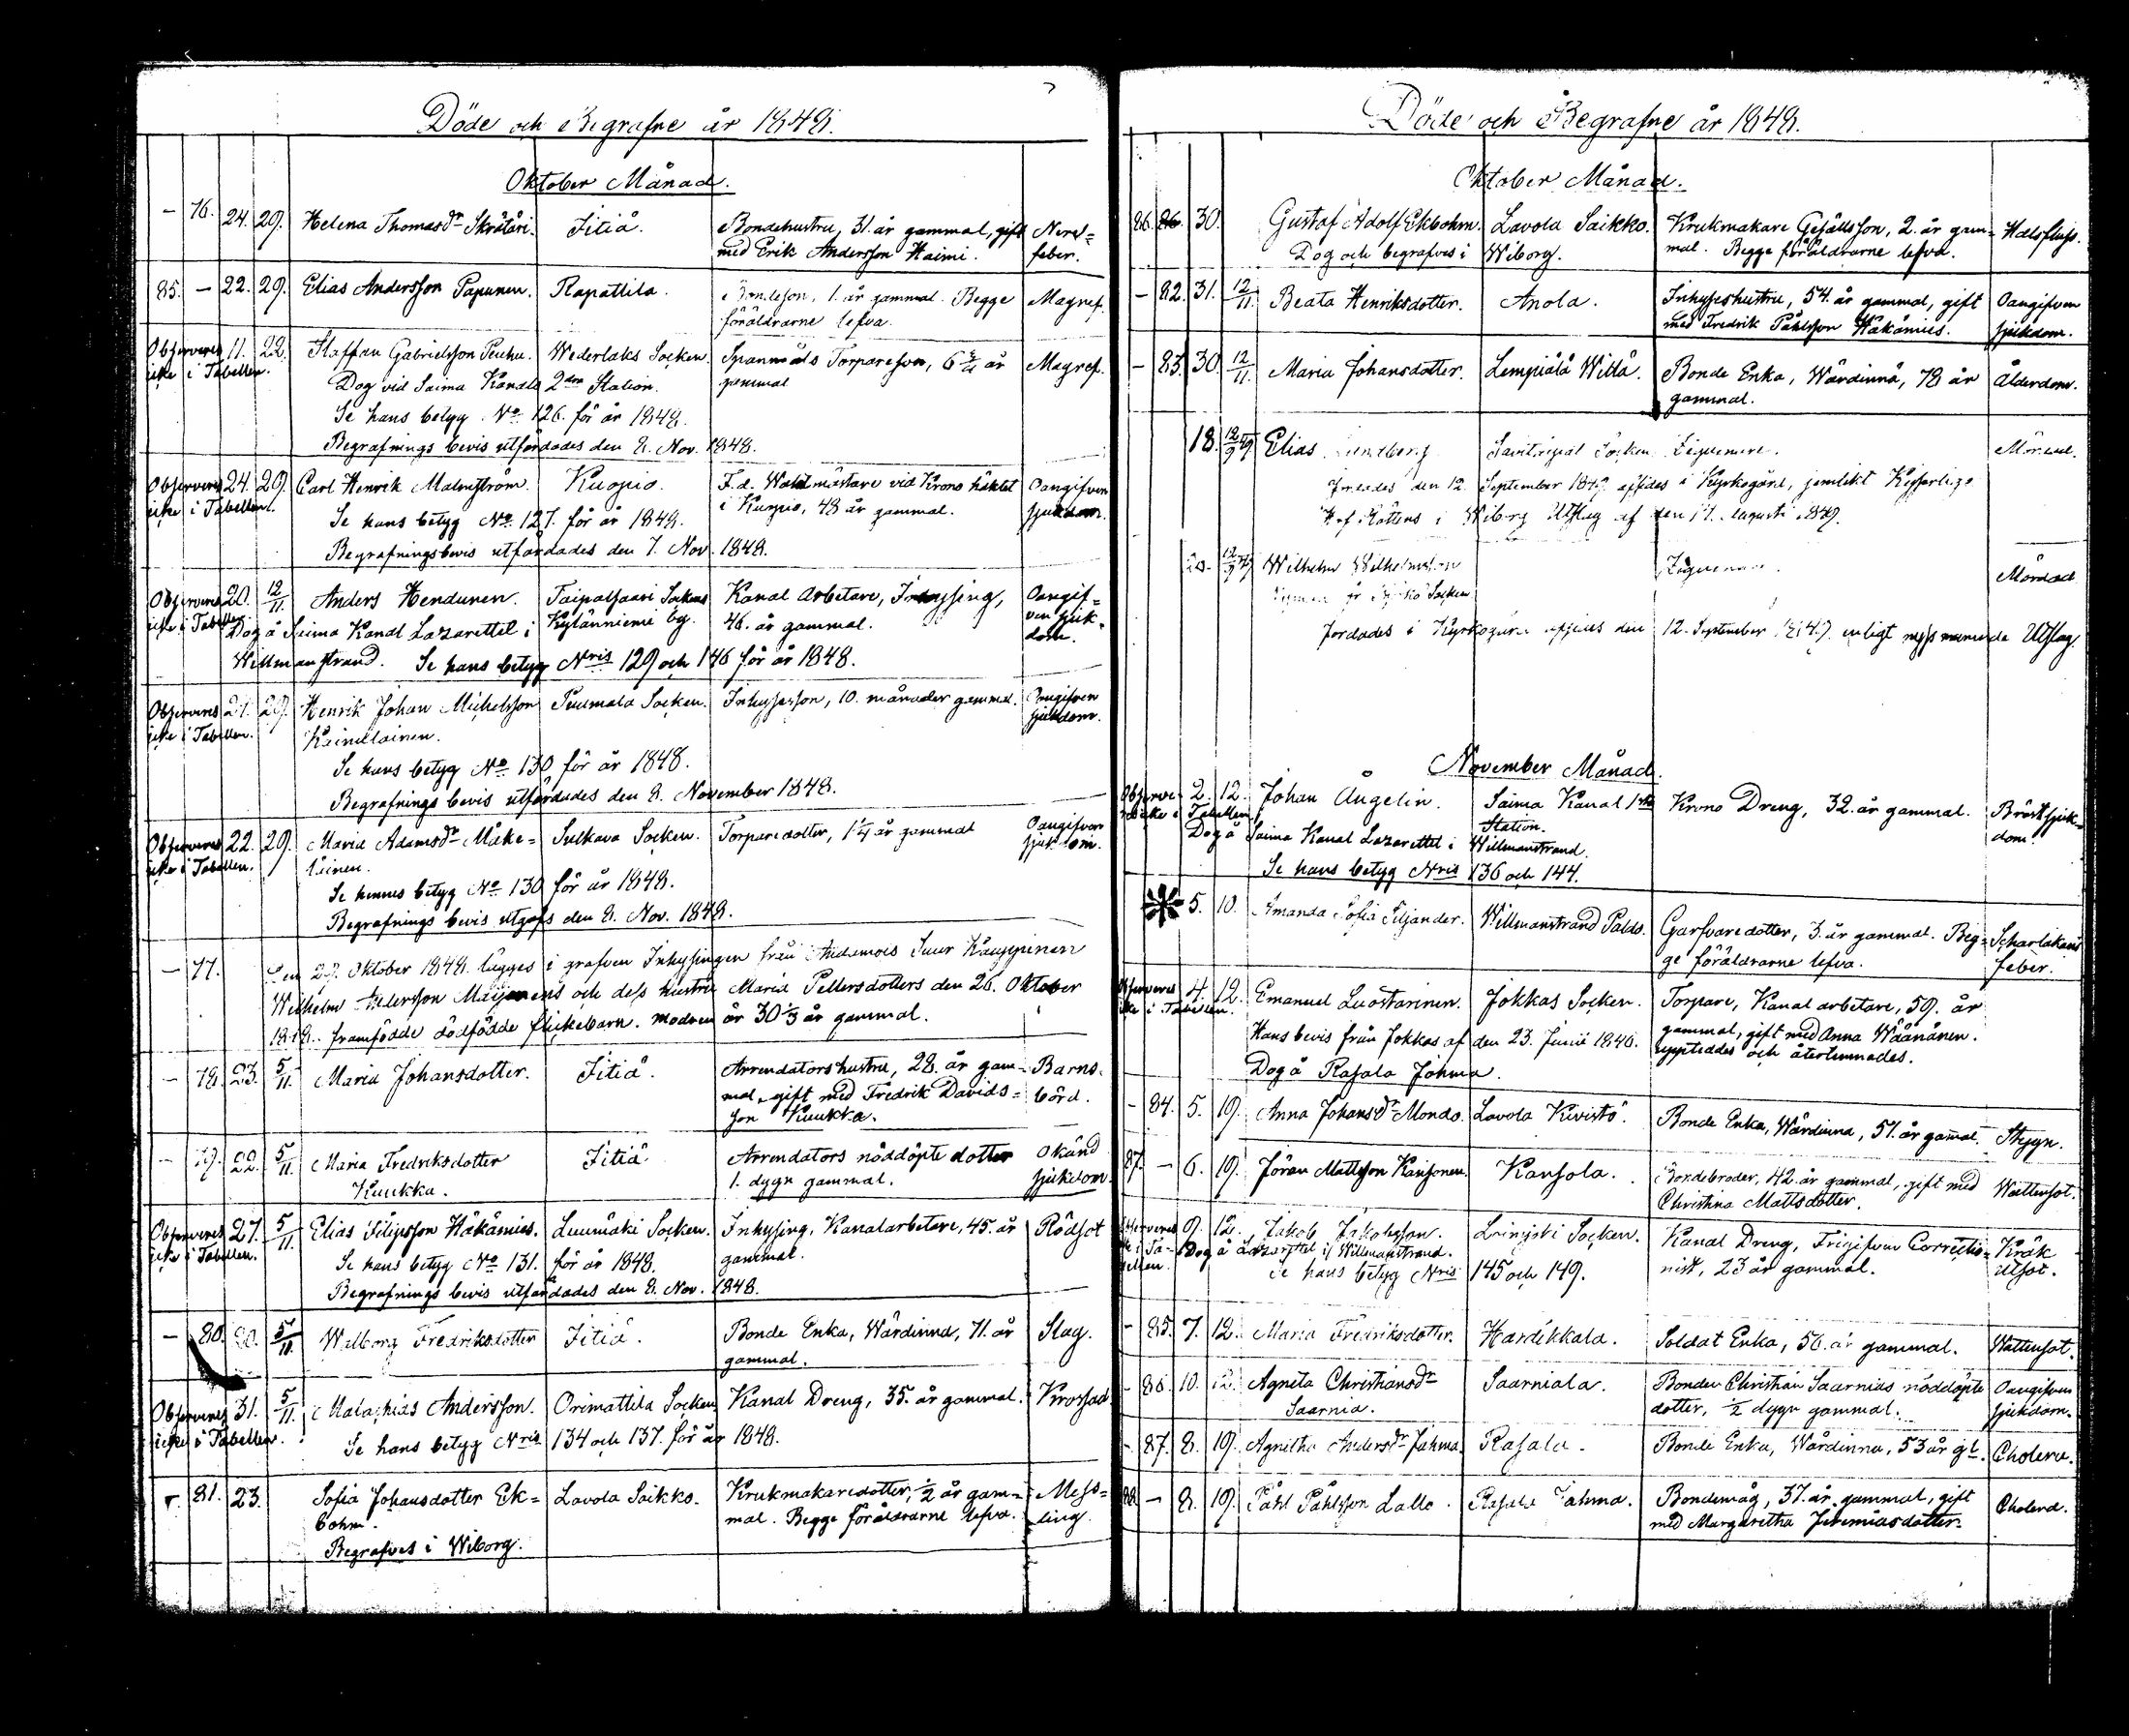 Döde och Begrafne år 1848.
Oktober Månad.
– 76. 24. 29. Helena Thomasdr Skrätäri. Jitiä. Bondehustru, 31. år gammal, gift Nerv=
med Erik Andersson Haimi. feber.
85. – 22. 29. Elias Andersson Papunen. Rapattila. Bondeson, 1. år gammal. Begge Magref.
föräldrarne lefva.
Observeres 11. 22. Staffan Gabrielsson Peuhu. Wederlaks Socken. Spanmåls Torpareson, 6 3/4 år Magref.
icke i Tabellen. Dog vid Saima Kanals 2dra Station. gammal
Se hans betyg No 126. för år 1848.
Begrafnings bevis utfärdades den 8. Nov. 1848.
Observeres 24. 29. Carl Henrik Malmström. Kuopio. F.d. Waktmästare vid Krono häktet Oangifven
icke i Tabellen. i Kuopio, 48 år gammal. sjukdom.
Se hans betyg No 127. för år 1848.
Begrafningsbevis utfärdades den 7. Nov. 1848.
Observeres 20. 12/11. Anders Hendunen. Taipalsaari Sockens Kanal Arbetare, Inhysing, Oangif=
icke i Tabellen. Kylänniemi by. 46. år gammal. ven sjuk=
dom.
Dog å Saima Kanal Lazarettet i
Willmanstrand. Se hans betyg Nris 129 och 146 för år 1848.
Observeres 27. 29. Henrik Johan Michelsson Puumala Socken. Inhysesson, 10. månader gammal. Oangifven
icke i Tabellen. Kainulainen. sjukdom.
Se hans betyg No 130 för år 1848.
Begrafnings bevis utfärdades den 8. November 1848.
Observeres 22. 29. Maria Adamsdr Mäke= Sulkava Socken. Torparedotter, 1 1/4 år gammal Oangifven
icke i Tabellen. läinen. sjukdom.
Se hennes betyg No 130 för år 1848.
Begrafnings bevis utgafs den 8. Nov. 1848.
– 77. Den 29. Oktober 1848. lagges i grafven Inhysingen från Suur Kauppinen
Wilhelm Andersson och dess hustru Maria Pettersdotters den 26. Oktober
1848. framfödde dödfödde flickebarn. Modren är 30 1/3 år gammal.
– 78. 23. 5/11. Maria Johansdotter. Jitiä. Arrendatorshustru, 28. år gam- Barns.
mal, gift med Fredrik Davids= börd.
son Kuukka.
– 79. 22. 5/11. Maria Fredriksdotter Jitiä Arrendators nöddöpte dotter Okänd
Kuukka. 1. dygn gammal. sjukdom.
Observeres 27. 5/11. Elias Filipsson Häkämies. Luumäki Socken. Inhysing, Kanalarbetare, 45. år Rödsot
icke i Tabellen. Se hans betyg No 131. för år 1848. gammal.
Begrafnings bevis utfärdades den 8. Nov. 1848.
– 80. 30. 5/11. Walborg Fredriksdotter Jitiä. Bonde Enka, Wärdinna, 71. år Slag.
gammal.
Observeres 31. 5/11. Matathias Andersson. Orimattila Socken Kanal Dreng, 35. år gammal. Krossad
icke i Tabellen. Se hans betyg Nris 134 och 137. för år 1848.
81. 23. Sofia Johansdotter Ek= Lavola Saikko. Krukmakaredotter, 1/2 år gam= Mess=
bohm. mal. Begge föräldrarne lefva. ling.
Begrafves i Wiborg.
Döde och Begrafne år 1848.
Oktober Månad.
86. 26. 30. Gustaf Adolf Ekbohm. Lavola Saikko. Krukmakare Gesällsson, 2. år gam= Halsfluss.
Dog och begrafves i Wiborg. mal. Begge föräldrarne lefva.
– 82. 31. 12/11. Beata Henriksdotter. Anola. Inhyseshustru, 54. år gammal, gift Oangifven
med Fredrik Påhlsson Häkämies. sjukdom.
– 83. 30. 12/11. Maria Johansdotter. Lempiälä Willa. Bonde Enka, Wärdinna, 78 år Ålderdom.
gammal.
18. 12/9 49 Elias Lundberg Savitaipal Socken Zigenare. Mördad.
Jordades den 12. September 1849 afsides i Kyrkogård, jemlikt Kejserlige
Hof Rättens i Wiborg Utslag af den 17. Augusti 1849.
20. 12/9 49 Wilhelm Wilhelmsson Zigenare. Mördad
Socken
Jordades i Kyrkogård afsides den 12. September 1849. enligt nyssnämnde Utslag.
November Månad.
Observe- 2. 12. Johan Ångelin. Saima Kanal 1sta Krono Dreng, 32. år gammal. Bröstsjuk=
res icke i Tabellen. Station. dom.
Dog å Saima Kanal Lazarettet i Willmanstrand.
Se hans betyg Nris 136 och 144.
5. 10. Amanda Sofia Siljander. Willmanstrand Paldo. Garfvaredotter, 3. år gammal. Beg= Scharlakans
ge föräldrarne lefva. feber.
Observeres 4. 12. Emanuel Luostarinen. Jokkas Socken. Torpare, Kanal arbetare, 59. år
icke i Tabellen. Hans bevis från Jokkas af den 23. Junii 1846. gammal, gift med Anna Wäänänen.
uppteddes och återlemnades.
Dog å Rasala Johma.
– 84. 5. 19. Anna Johansdr Mondo. Lavola Kivistö. Bonde Enka, Wärdinna, 57. år gammal. Stygn.
87. – 6. 19. Jöran Mattsson Kansonen. Kansola. Bondebroder, 42 år gammal, gift med Wattensot.
Christina Mattsdotter.
Observeres 9. 12. Jakob Jakobsson. Leinijski Socken. Kanal Dreng, Frigifven Correctio= Kräk
icke i Ta- Dog å Lazarettet i Willmanstrand. nist, 23 år gammal. utsot.
bellen. Se hans betyg Nris 145 och 149.
– 85. 7. 12. Maria Fredriksdotter. Hardikkala. Soldat Enka, 56. år gammal. Wattensot.
– 86. 10. 12. Agneta Christiansdr Saarniala. Bonden Christian Saarnias nöddöpte Oangifven
Saarnia. dotter, 1/2 dygn gammal. sjukdom.
– 87. 8. 19. Agnetha Andersdr Jahma. Rasala. Bonde Enka, Wärdinna, 53 år gl. Cholera.
88. – 8. 19. Påhl Påhlsson Lallo. Rasala Jahma. Bondemåg, 37. år gammal, gift Cholera.
med Margaretha Jeremiasdotter.